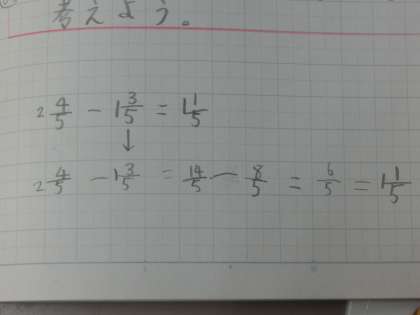 考えよう。
2 4/5 - 1 3/5 = 1 1/5
↓
2 4/5 - 1 3/5 = 14/5 - 8/5 = 6/5 = 1 1/5